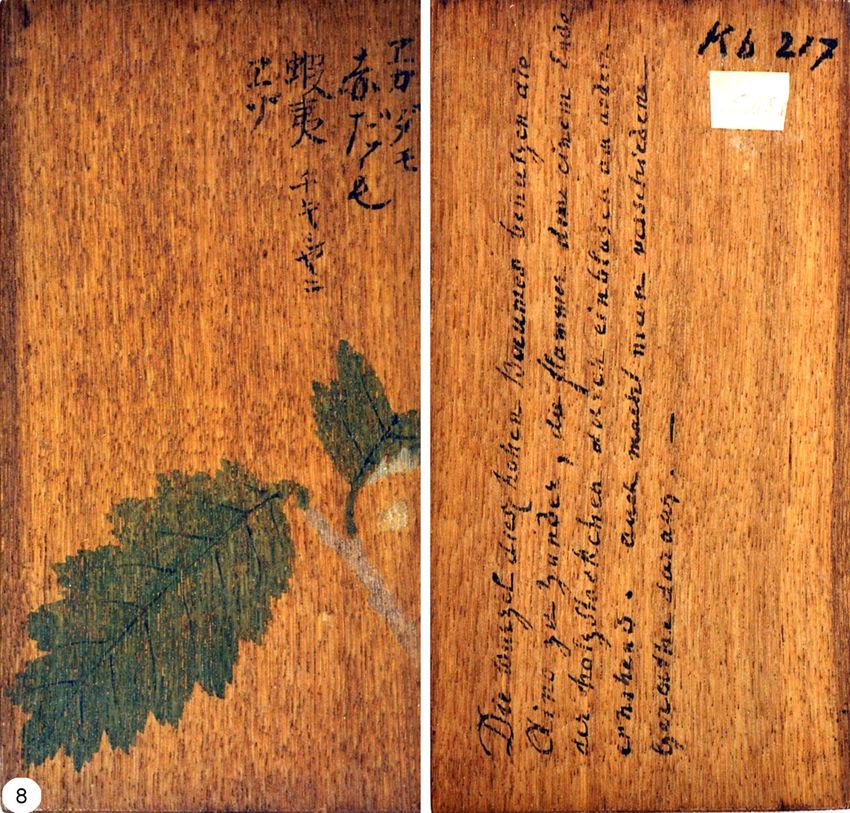 アカダモ
赤だも
蝦夷 チキシヤニ
エゾ
Kb 217
Die wurzel dies hohen Baumes benutzen die
Aino zu Zunder, die flammen dem einem Ende
der holzstöckchen durch einblasen am andern
entstehend. auch macht man verschiedene
Geraethe daraus. —
8